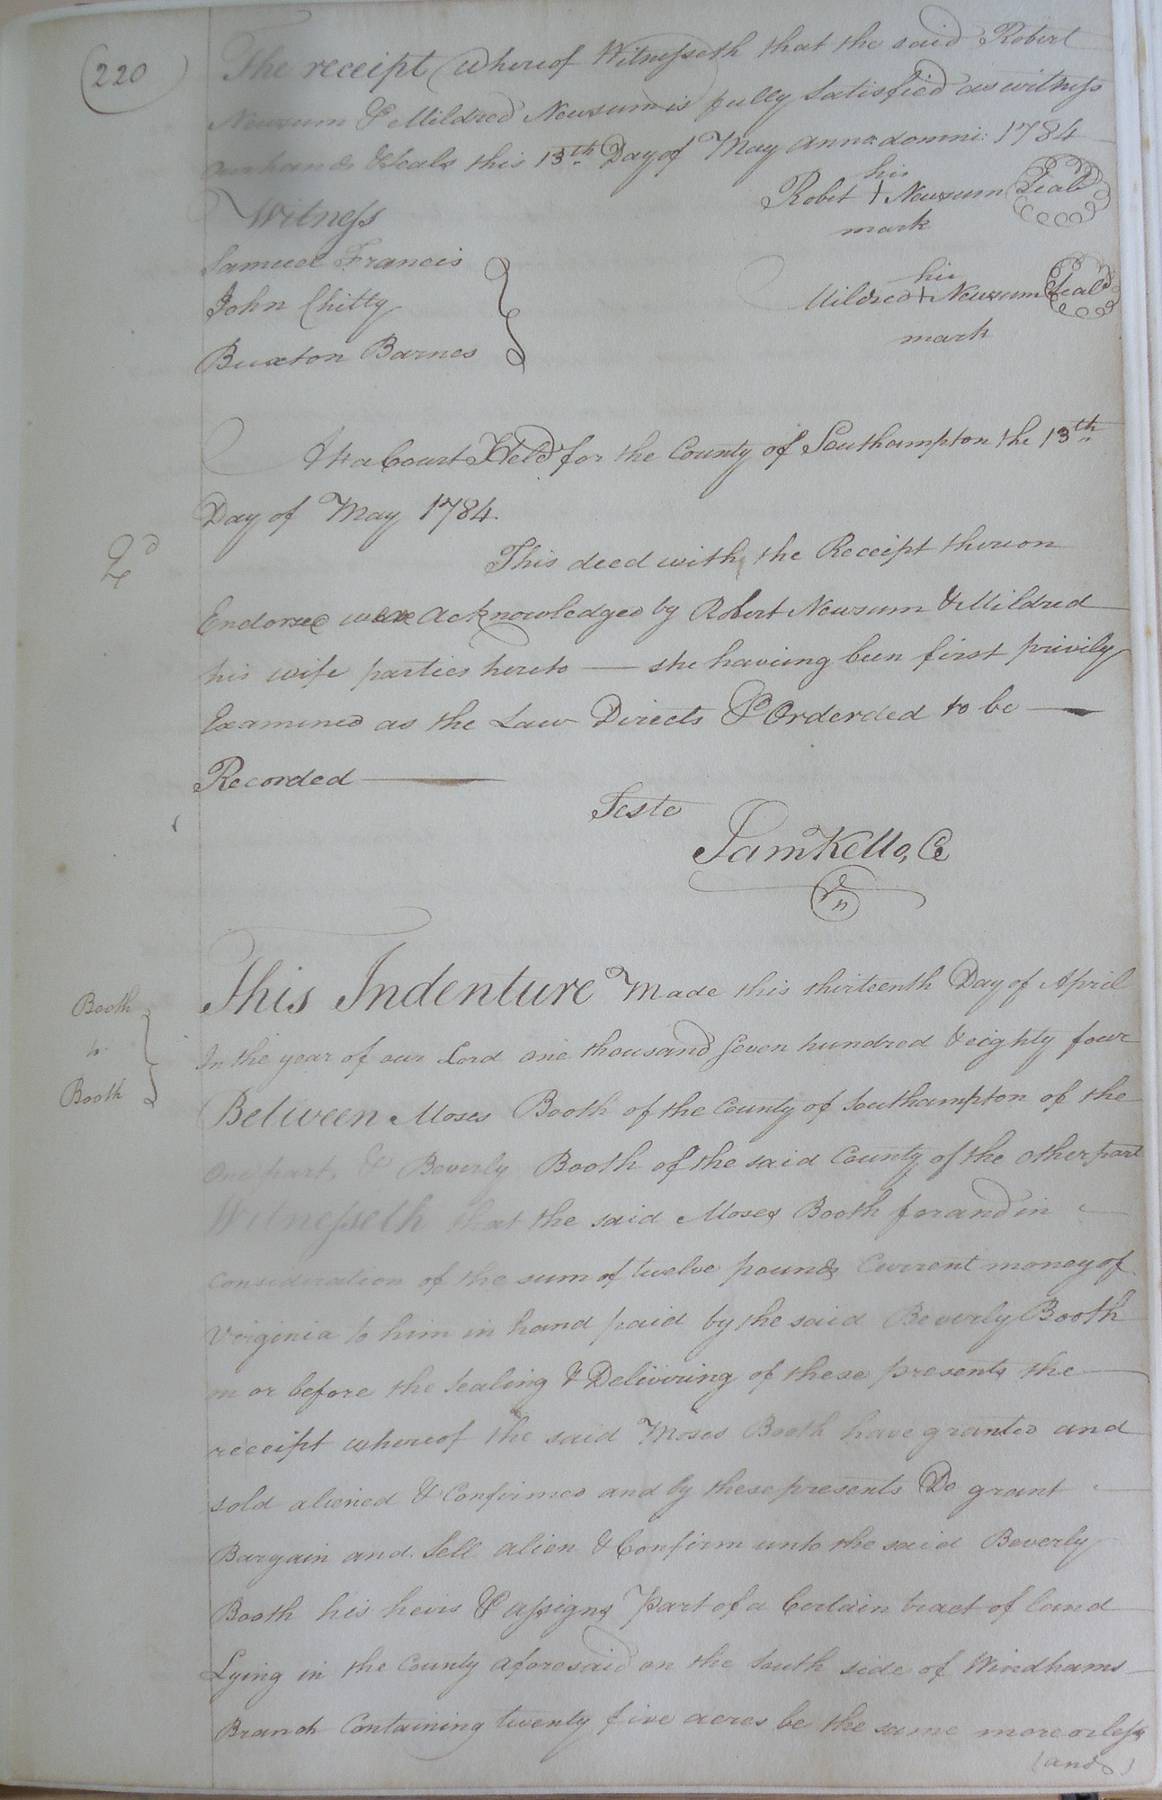 220
The receipt whereof Witnesseth that the said Robert
Newsum & Mildred Newsum is fully Satisfied as witness
our hands & Seals this 13th Day of May anno domni: 1784
his
Robt + Newsum Seal
mark
Witness
Samuel Francis
John Chitty
Buxton Barnes
his
Mildred + Newsum Seal
mark
At a Court Held for the County of Southampton the 13th
Day of May 1784.
This deed with the Receipt thereon
Endorsed were acknowledged by Robert Newsum & Mildred
his wife parties hereto — she having been first privily
Examined as the Law Directs & Orderded to be —
Recorded —
Teste
Sam Kello, C
Booth
to
Booth
This Indenture Made this thirteenth Day of April
In the year of our Lord one thousand Seven hundred & eighty four
Between Moses Booth of the County of Southampton of the
One part, & Beverly Booth of the said County of the other part
Witnesseth that the said Moses Booth for and in
Consideration of the sum of twelve pounds Current money of
Virginia to him in hand paid by the said Beverly Booth
on or before the Sealing & Delivering of these presents the —
receipt whereof the said Moses Booth have granted and
sold aliened & Confirmed and by these presents Do grant —
Bargain and Sell alien & Confirm unto the said Beverly
Booth his heirs & assigns Part of a Certain tract of land
Lying in the County aforesaid on the South side of Windhams —
Branch Containing twenty five acres be the same more or less
(and)